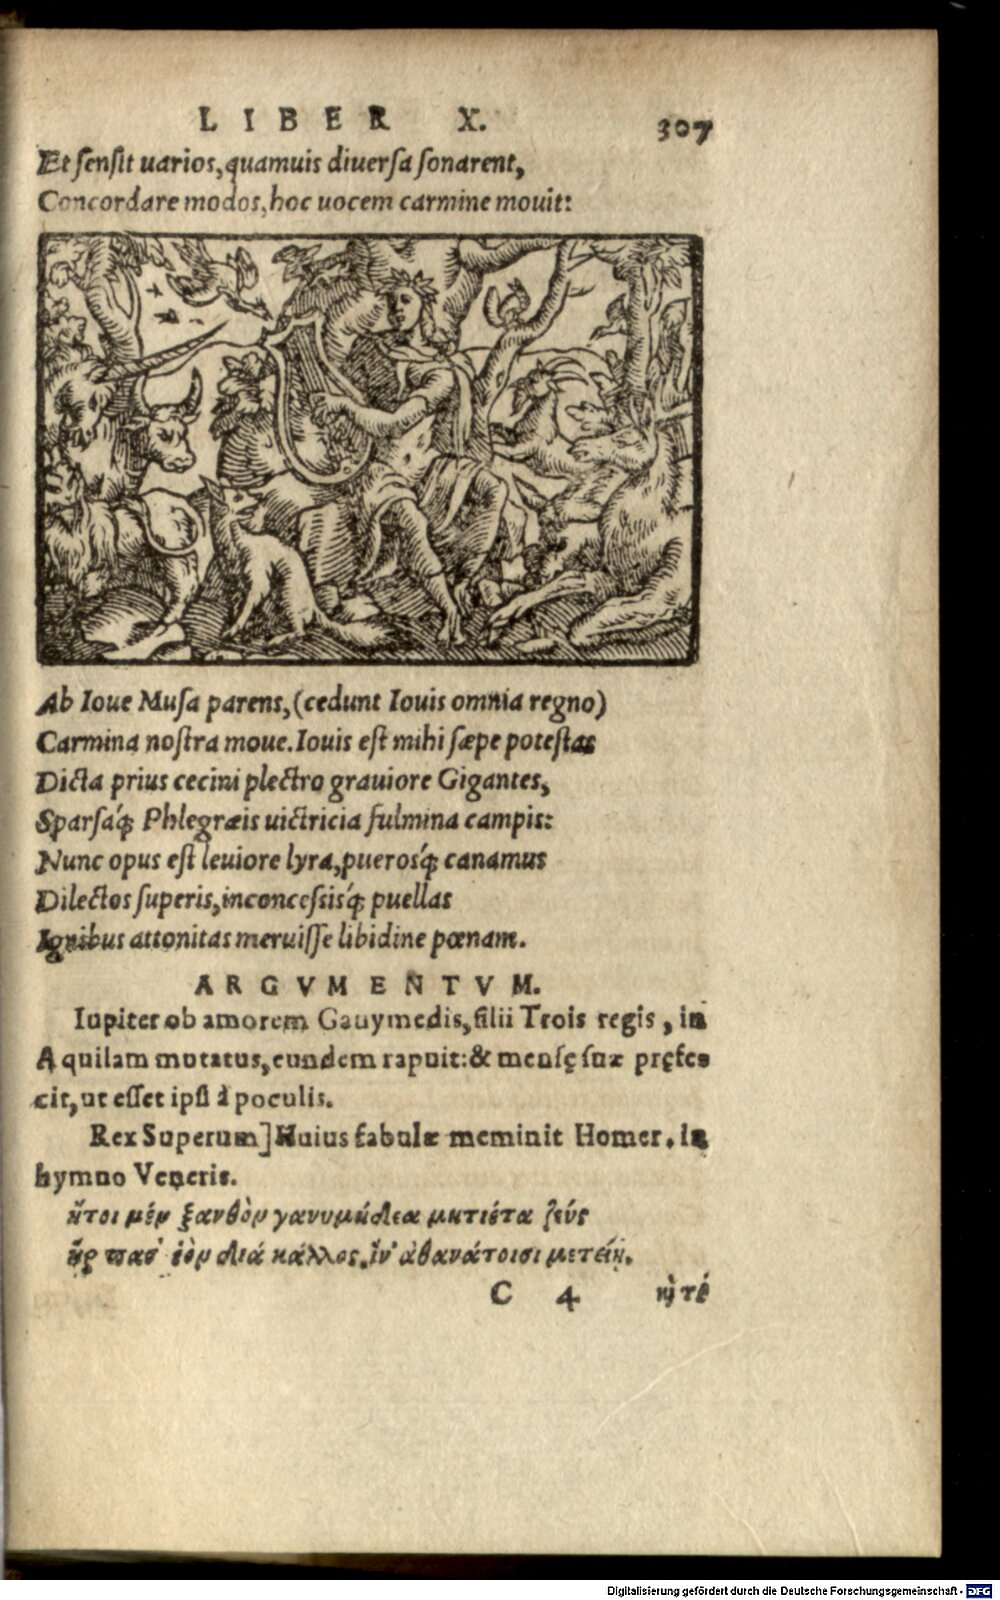 LIBER X. 307
Et ſenſit uarios, quamuis diuerſa ſonarent,
Concordare modos, hoc uocem carmine mouit:
Ab Ioue Muſa parens, (cedunt Iouis omnia regno)
Carmina noſtra moue. Iouis eſt mihi ſæpe poteſtas
Dicta prius cecini plectro grauiore Gigantes,
Sparſaq́; Phlegræis uictricia fulmina campis:
Nunc opus eſt leuiore lyra, pueroſq́; canamus
Dilectos ſuperis, inconceſsisq́; puellas
Ignibus attonitas meruiſſe libidine pœnam.
ARGVMENTVM.
Iupiter ob amorem Gauymedis, filii Trois regis, in
Aquilam mutatus, eundem rapuit: & menſę ſuæ pręfe⸗
cit, ut eſſet ipſi à poculis.
Rex Superum] Huius fabulæ meminit Homer. in
hymno Veneris.
ἤτοι μὲν ξανθὸν γανυμήδεα μητιέτα ζεύς
ἥρπασ' ἑὸν διά κάλλος, ἵν' ἀθανάτοισι μετείη.
C 4 κỳ τέ
Digitalisierung gefördert durch die Deutsche Forschungsgemeinschaft - DFG